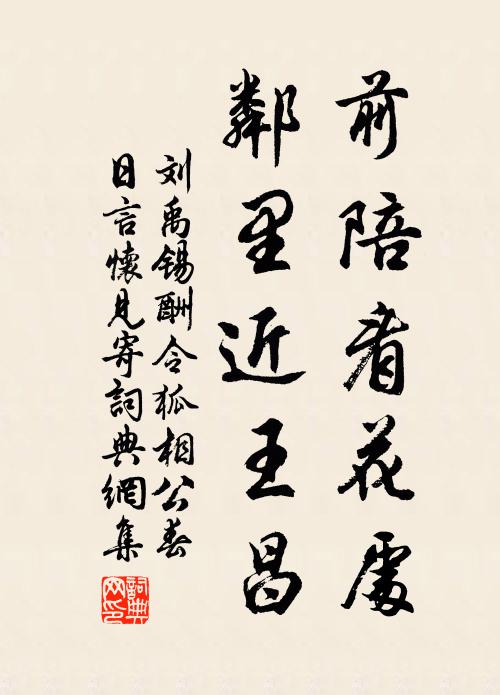 前陪看花處
鄰里近王昌
刘禹锡酬令狐相公春
日言懷見寄詞典網集
詞典網印